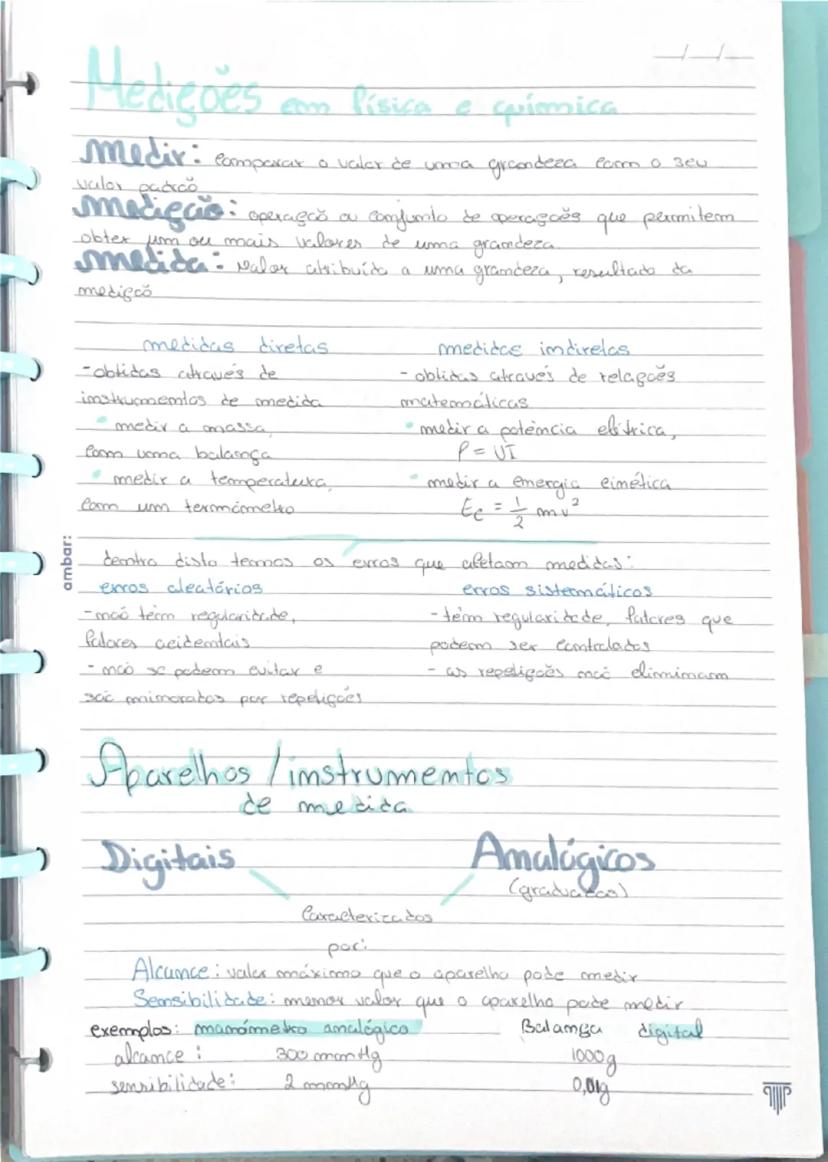 Medições em física e química
medir: comparar o valor de uma grandeza com o seu
valor padrão
medição: operação ou conjunto de operações que permitem
obter um ou mais valores de uma grandeza
medida: valor atribuído a uma grandeza, resultado da
medição
medidas diretas
- obtidas através de
instrumentos de medida
• medir a massa,
com uma balança
• medir a temperatura,
com um termómetro
medidas indiretas
- obtidas através de relações
matemáticas
• medir a potência elétrica,
P = UI
• medir a energia cinética
Ec = 1/2 mv²
ambar:
dentro disto temos os erros que afetam medidas:
erros aleatórios
- não têm regularidade,
fatores acidentais
- não se podem evitar e
são minorados por repetições
erros sistemáticos
- têm regularidade, fatores que
podem ser controlados
- as repetições não eliminam
Aparelhos / instrumentos
de medida
Digitais Analógicos
(graduados)
Caracterizados
por:
Alcance: valor máximo que o aparelho pode medir
Sensibilidade: menor valor que o aparelho pode medir
exemplos: manómetro analógico Balança digital
alcance: 300 mmHg 1000g
sensibilidade: 2 mmHg 0,01g